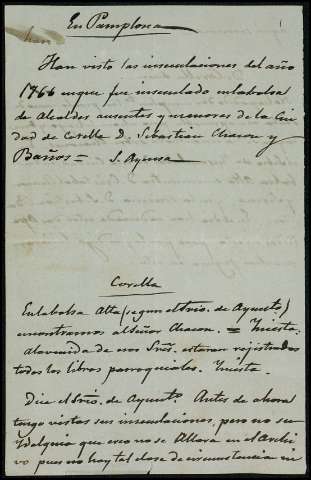 En Pamplona
Han visto las inseculaciones del año
1766 en que fue inseculado en la bolsa
de Alcaldes ausentes y menores de la Ciu
dad de Corella D. Sebastian Chacon y
Baños = S. Ayensa
Corella
En la bolsa Alta (segun el Srio. de Ayunto.)
encontramos al Señor Chacon. =
a la venida de esos Sres. estaran registrados
todos los libros parroquiales.
Dice el Srio. de Ayunto. Antes de ahora
tengo vistas sus inseculaciones, pero no su
que creo no se allara en el Archi
vo pues no hay tal clase de circunstancia ni